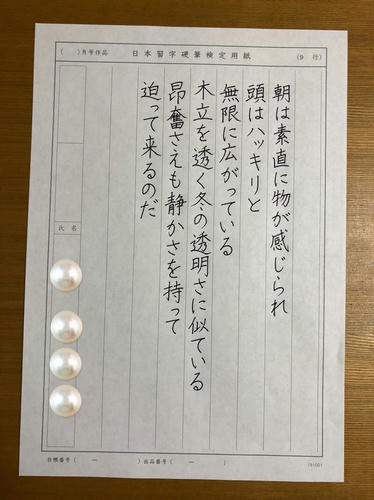 (　)月号作品　日本習字硬筆検定用紙　(9 行)
朝は素直に物が感じられ
頭はハッキリと
無限に広がっている
木立を透く冬の透明さに似ている
昂奮さえも静かさを持って
迫って来るのだ
氏名
台帳番号(　ー　)出品番号(　ー　)
191001